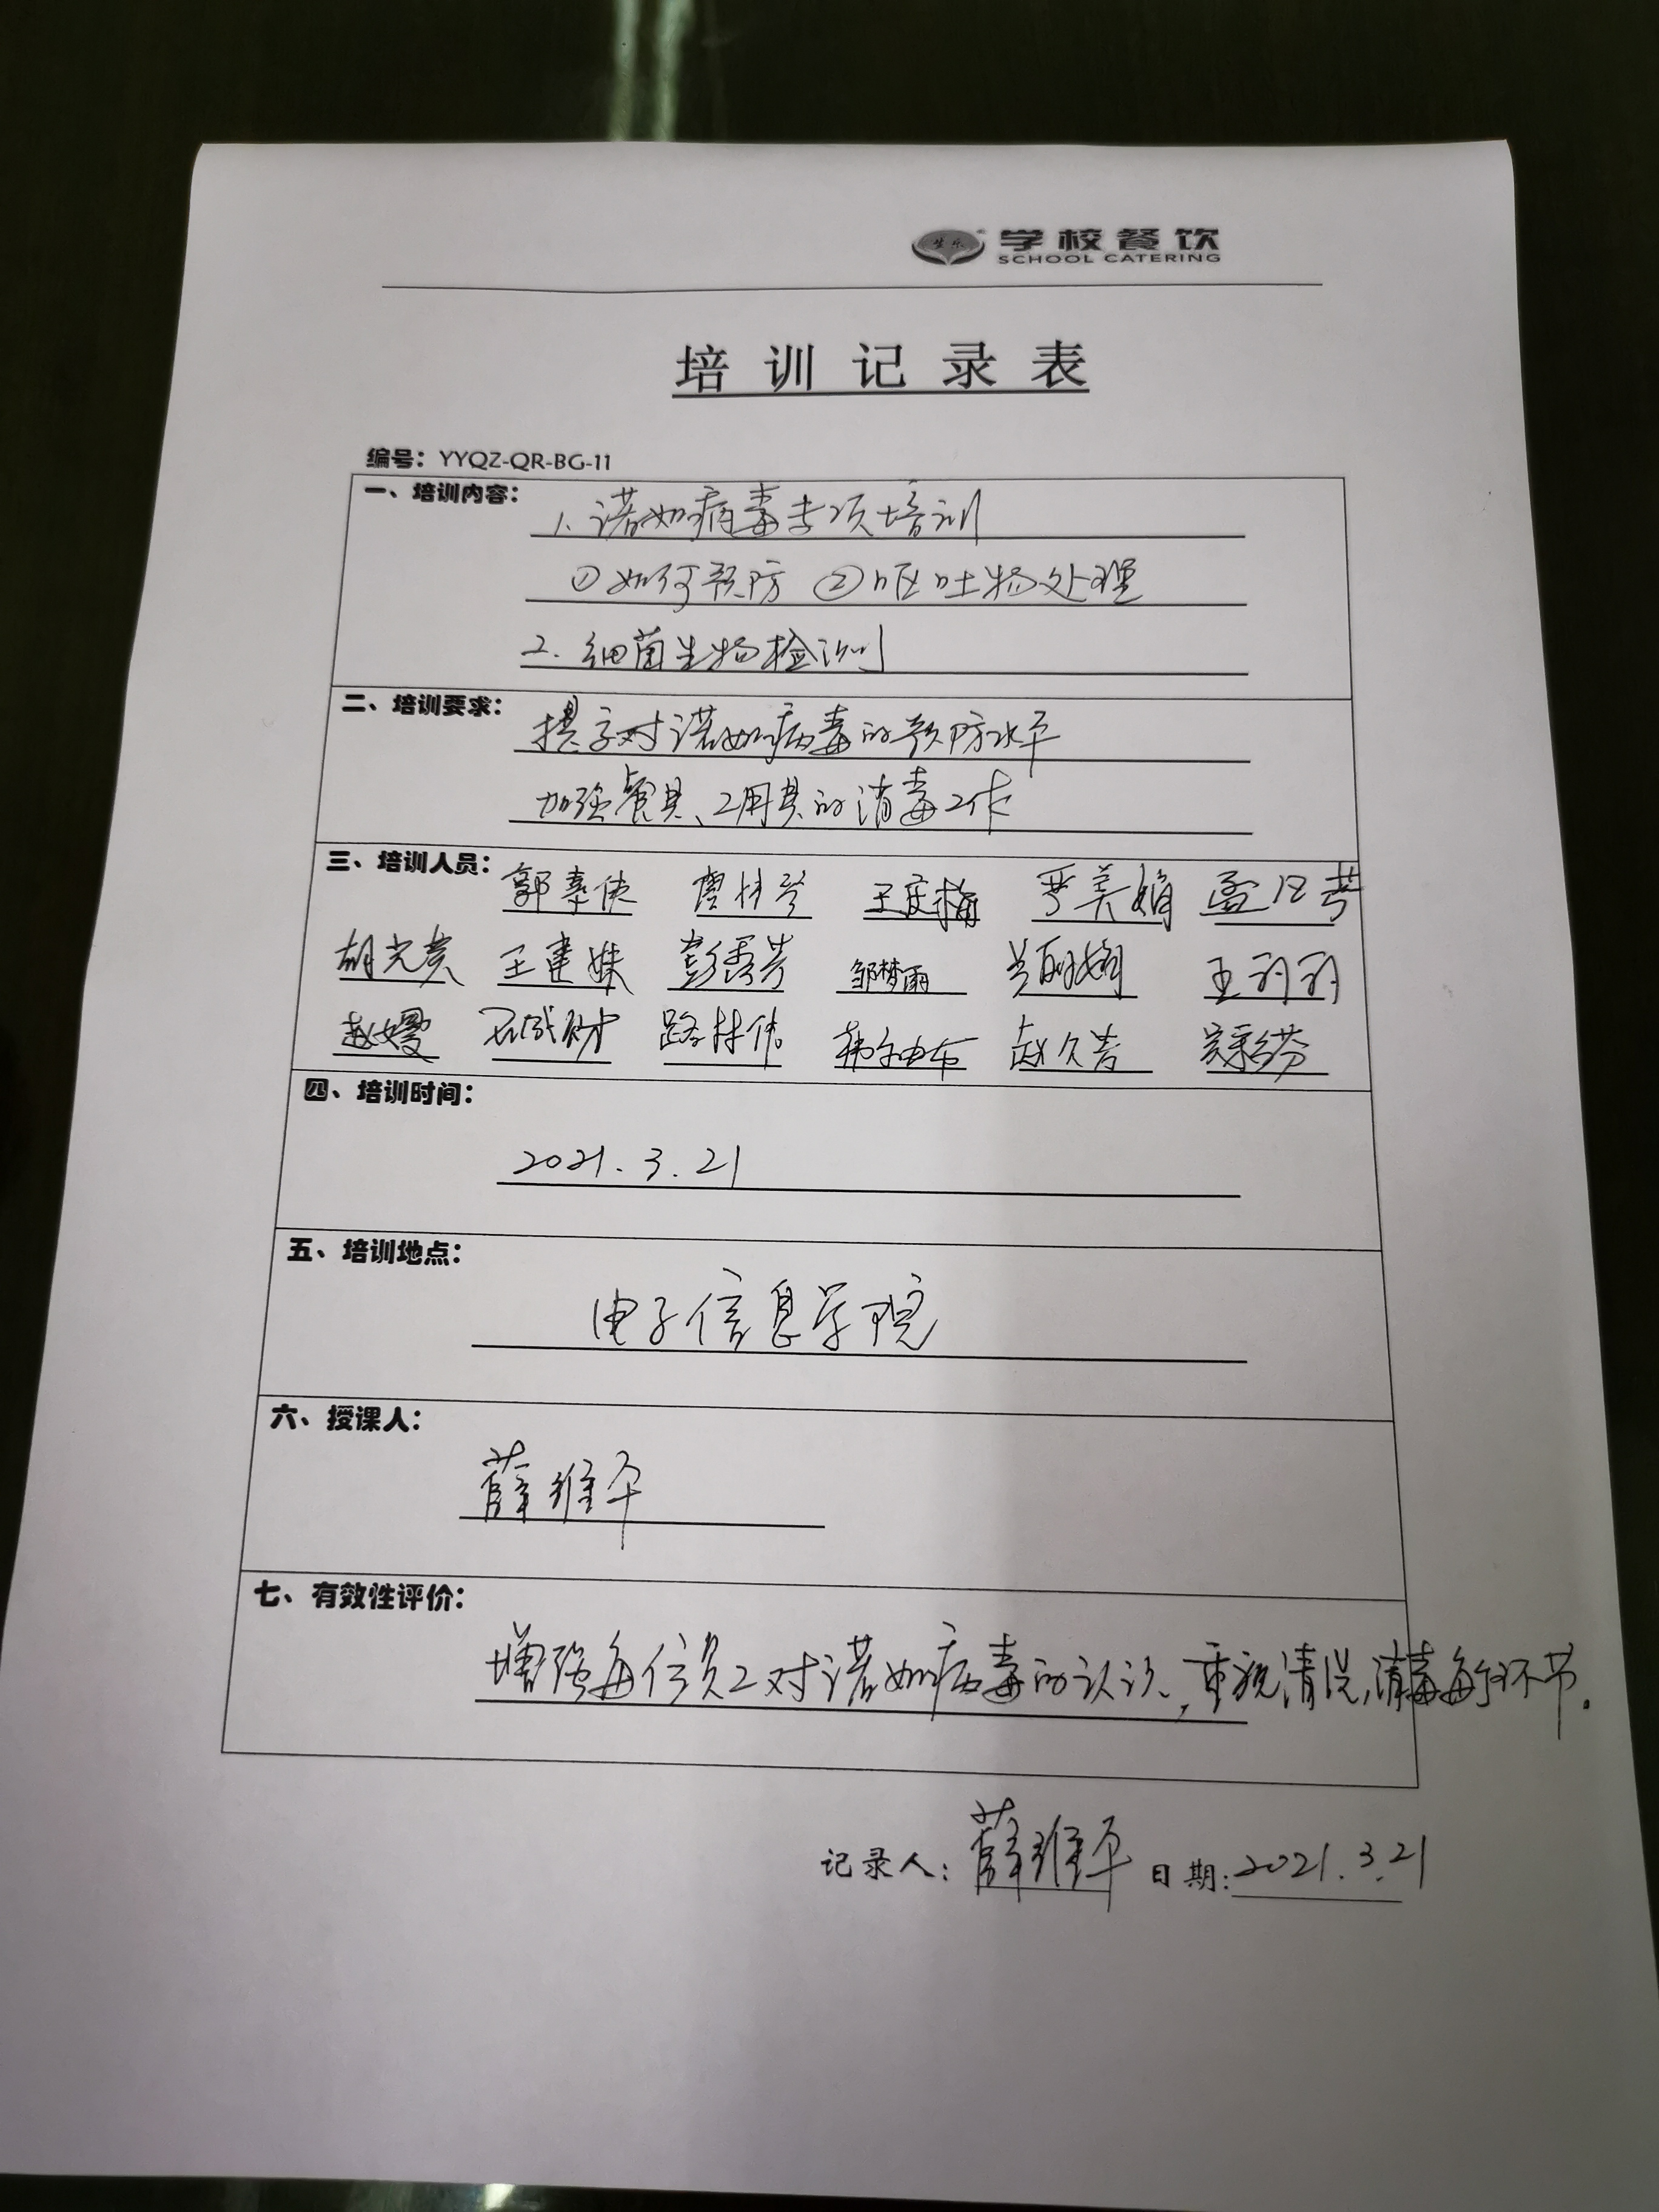 学校餐饮
SCHOOL CATERING
培训记录表
编号：YYQZ-QR-BG-11
一、培训内容：
1. 诺如病毒专项培训
①如何预防 ②呕吐物处理
2. 细菌生物检测
二、培训要求：
提高对诺如病毒的预防水平
加强餐具、工用具的消毒工作
三、培训人员：
王庭梅 严美娟
胡光荣 王建妹 彭秀芳 邹梦雨 王利利
赵媛 路林伟
四、培训时间：
2021.3.21
五、培训地点：
电子信息学院
六、授课人：
薛维平
七、有效性评价：
增强每位员工对诺如病毒的认识，重视清洗，消毒每个环节。
记录人：薛维平 日期：2021.3.21